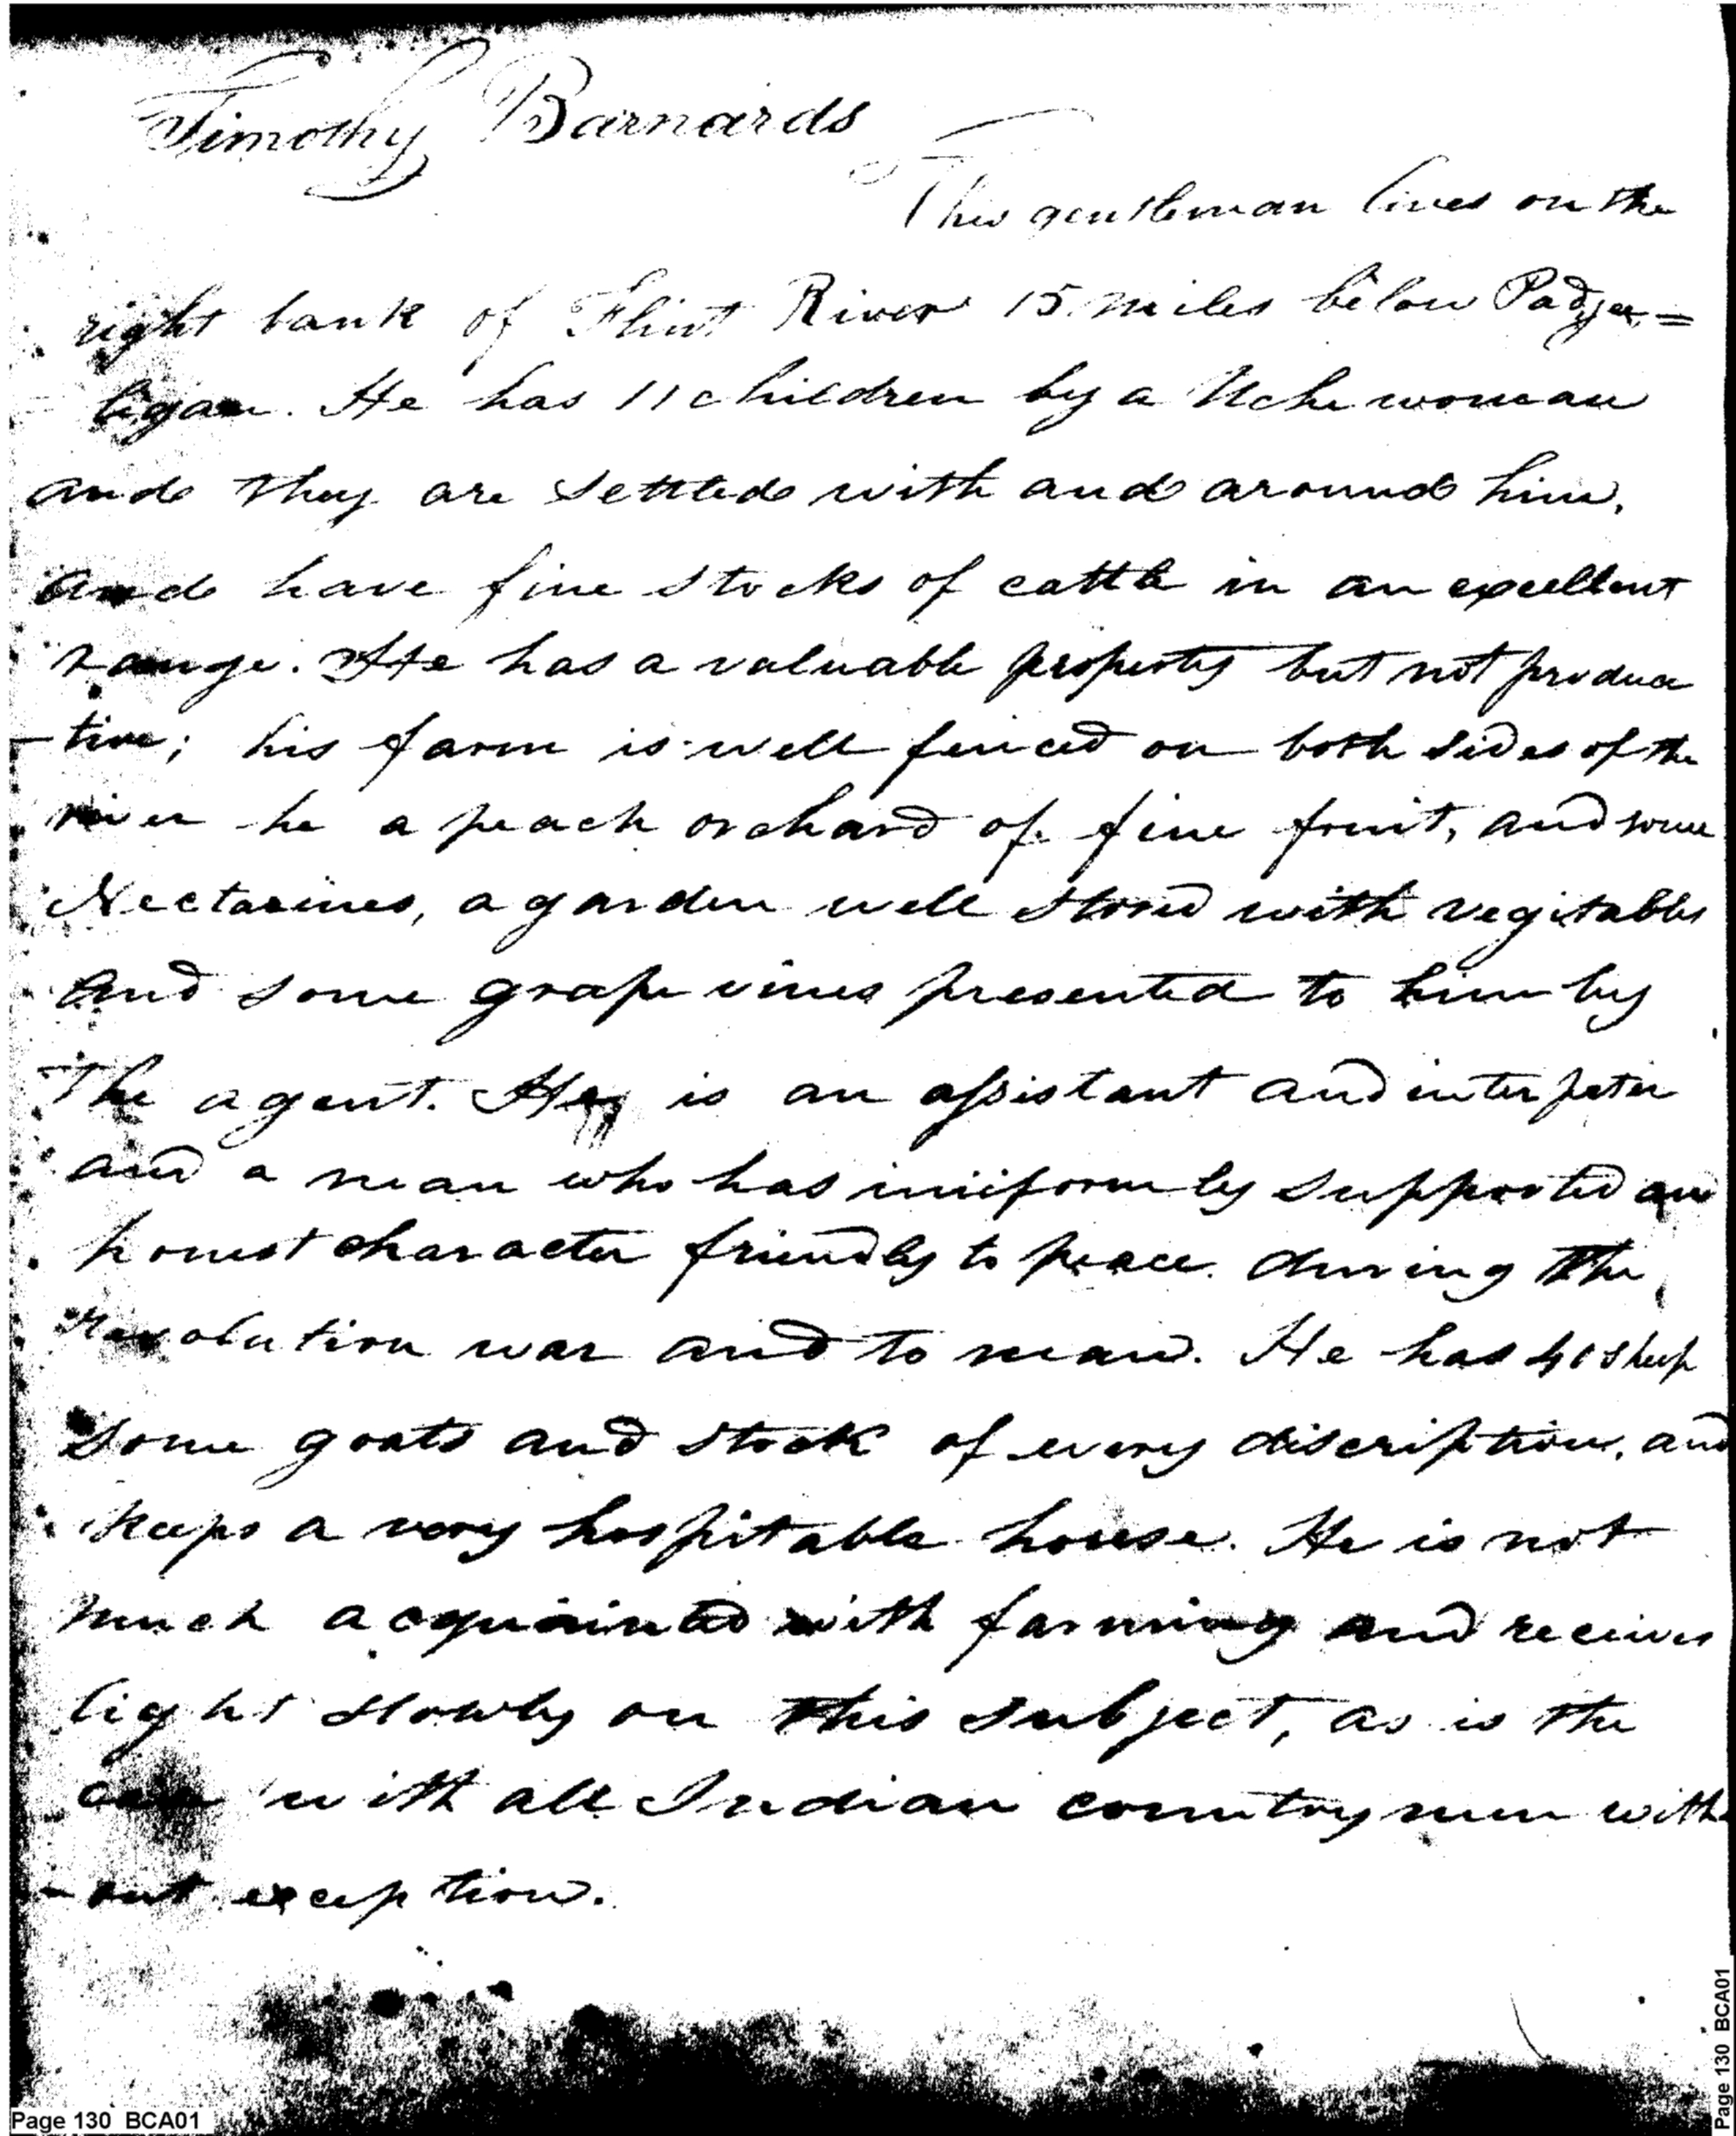 Timothy Barnards
This gentleman lives on the
right bank of Flint River 15 miles below Padjee=
ligau. He has 11 children by a Uche woman
and they are settled with and around him,
and have fine stocks of cattle in an excellent
range. He has a valuable property but not produc
-tive; his farm is well fenced on both sides of the
river he a peach orchard of fine fruit, and some
Nectarines, a garden well stored with vegitables
and some grape vines presented to him by
the agent. He is an assistant and interpeter
and a man who has uniformly supported an
honest character friendly to peace. during the
revolution war and to man. He has 40 sheep
some goats and stock of every discription, and
keeps a very hospitable house. He is not
much acquainted with farming and receives
light slowly on this subject, as is the
case with all Indian countrymen with
-out exception.
Page 130 BCA01
Page 130 BCA01